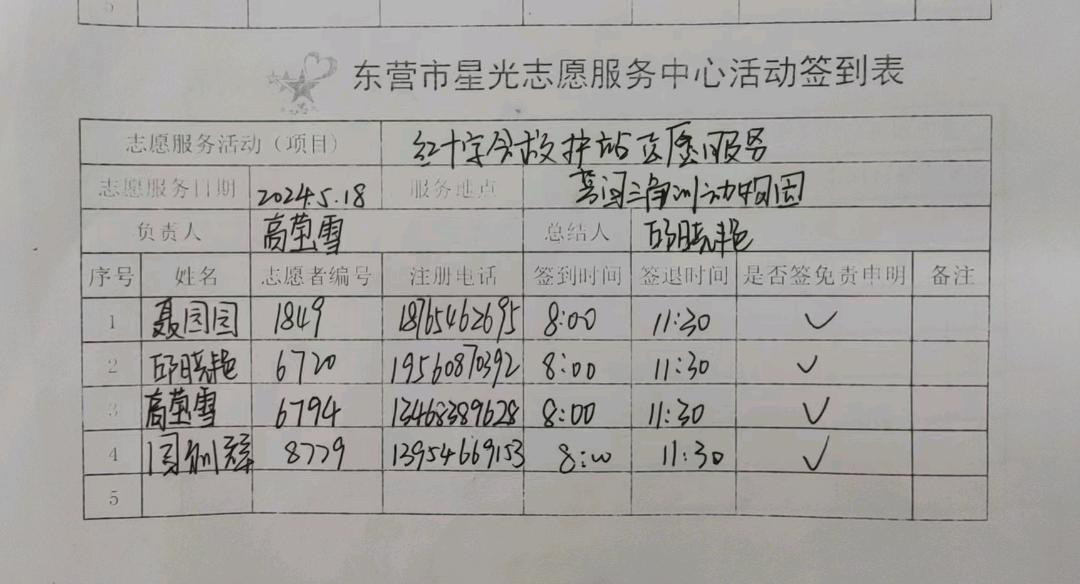 5
东营市星光志愿服务中心活动签到表
志愿服务活动（项目） 红十字会救护站志愿服务
志愿服务日期 2024.5.18 服务地点 黄河三角洲动物园
负责人 高莹雪 总结人 邱晓艳
序号 姓名 志愿者编号 注册电话 签到时间 签退时间 是否签免责申明 备注
1 聂园园 1849 18765462695 8:00 11:30 ✓
2 邱晓艳 6720 19560870392 8:00 11:30 ✓
3 高莹雪 6794 13468389628 8:00 11:30 ✓
4 8779 13954669153 8:00 11:30 ✓
5